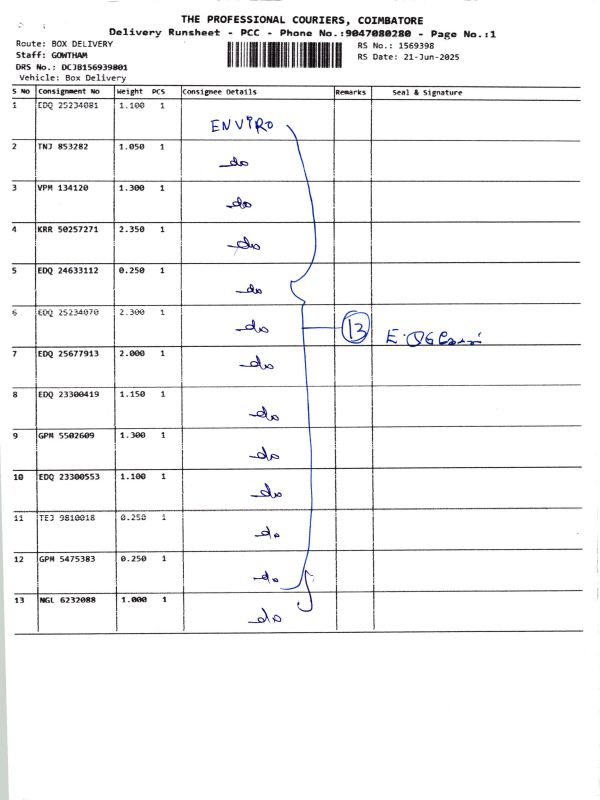 THE PROFESSIONAL COURIERS, COIMBATORE
Delivery Runsheet - PCC - Phone No.:9047080280 - Page No.:1
Route: BOX DELIVERY
RS No.: 1569398
Staff: GOWTHAM
RS Date: 21-Jun-2025
DRS No.: DCJB156939801
Vehicle: Box Delivery
S No Consignment No Weight PCS Consignee Details Remarks Seal & Signature
1 EDQ 25234081 1.100 1 ENVIRO
2 TNJ 853282 1.050 1 -do
3 VPM 134120 1.300 1 -do
4 KRR 50257271 2.350 1 -do
5 EDQ 24633112 0.250 1 -do
6 EDQ 25234070 2.300 1 -do 13
7 EDQ 25677913 2.000 1 -do
8 EDQ 23300419 1.150 1 -do
9 GPM 5502609 1.300 1 -do
10 EDQ 23300553 1.100 1 -do
11 TEJ 9810018 0.250 1 -do
12 GPM 5475383 0.250 1 -do
13 NGL 6232088 1.000 1 -do